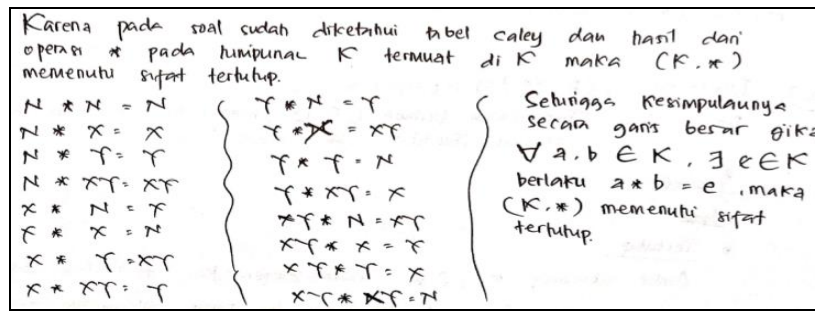 Karena pada soal sudah diketahui tabel caley dan hasil dari
operasi * pada himpunan K termuat di K maka (K,*)
memenuhi sifat tertutup.
N * N = N
N * X = X
N * Y = Y
N * XY = XY
X * N = X
X * X = N
X * Y = XY
X * XY = Y
Y * N = Y
Y * X = XY
Y * Y = N
Y * XY = X
XY * N = XY
XY * X = Y
XY * Y = X
XY * XY = N
Sehingga kesimpulannya
secara garis besar jika
∀ a,b ∈ K, ∃ e ∈ K
berlaku a * b = e, maka
(K,*) memenuhi sifat
tertutup.